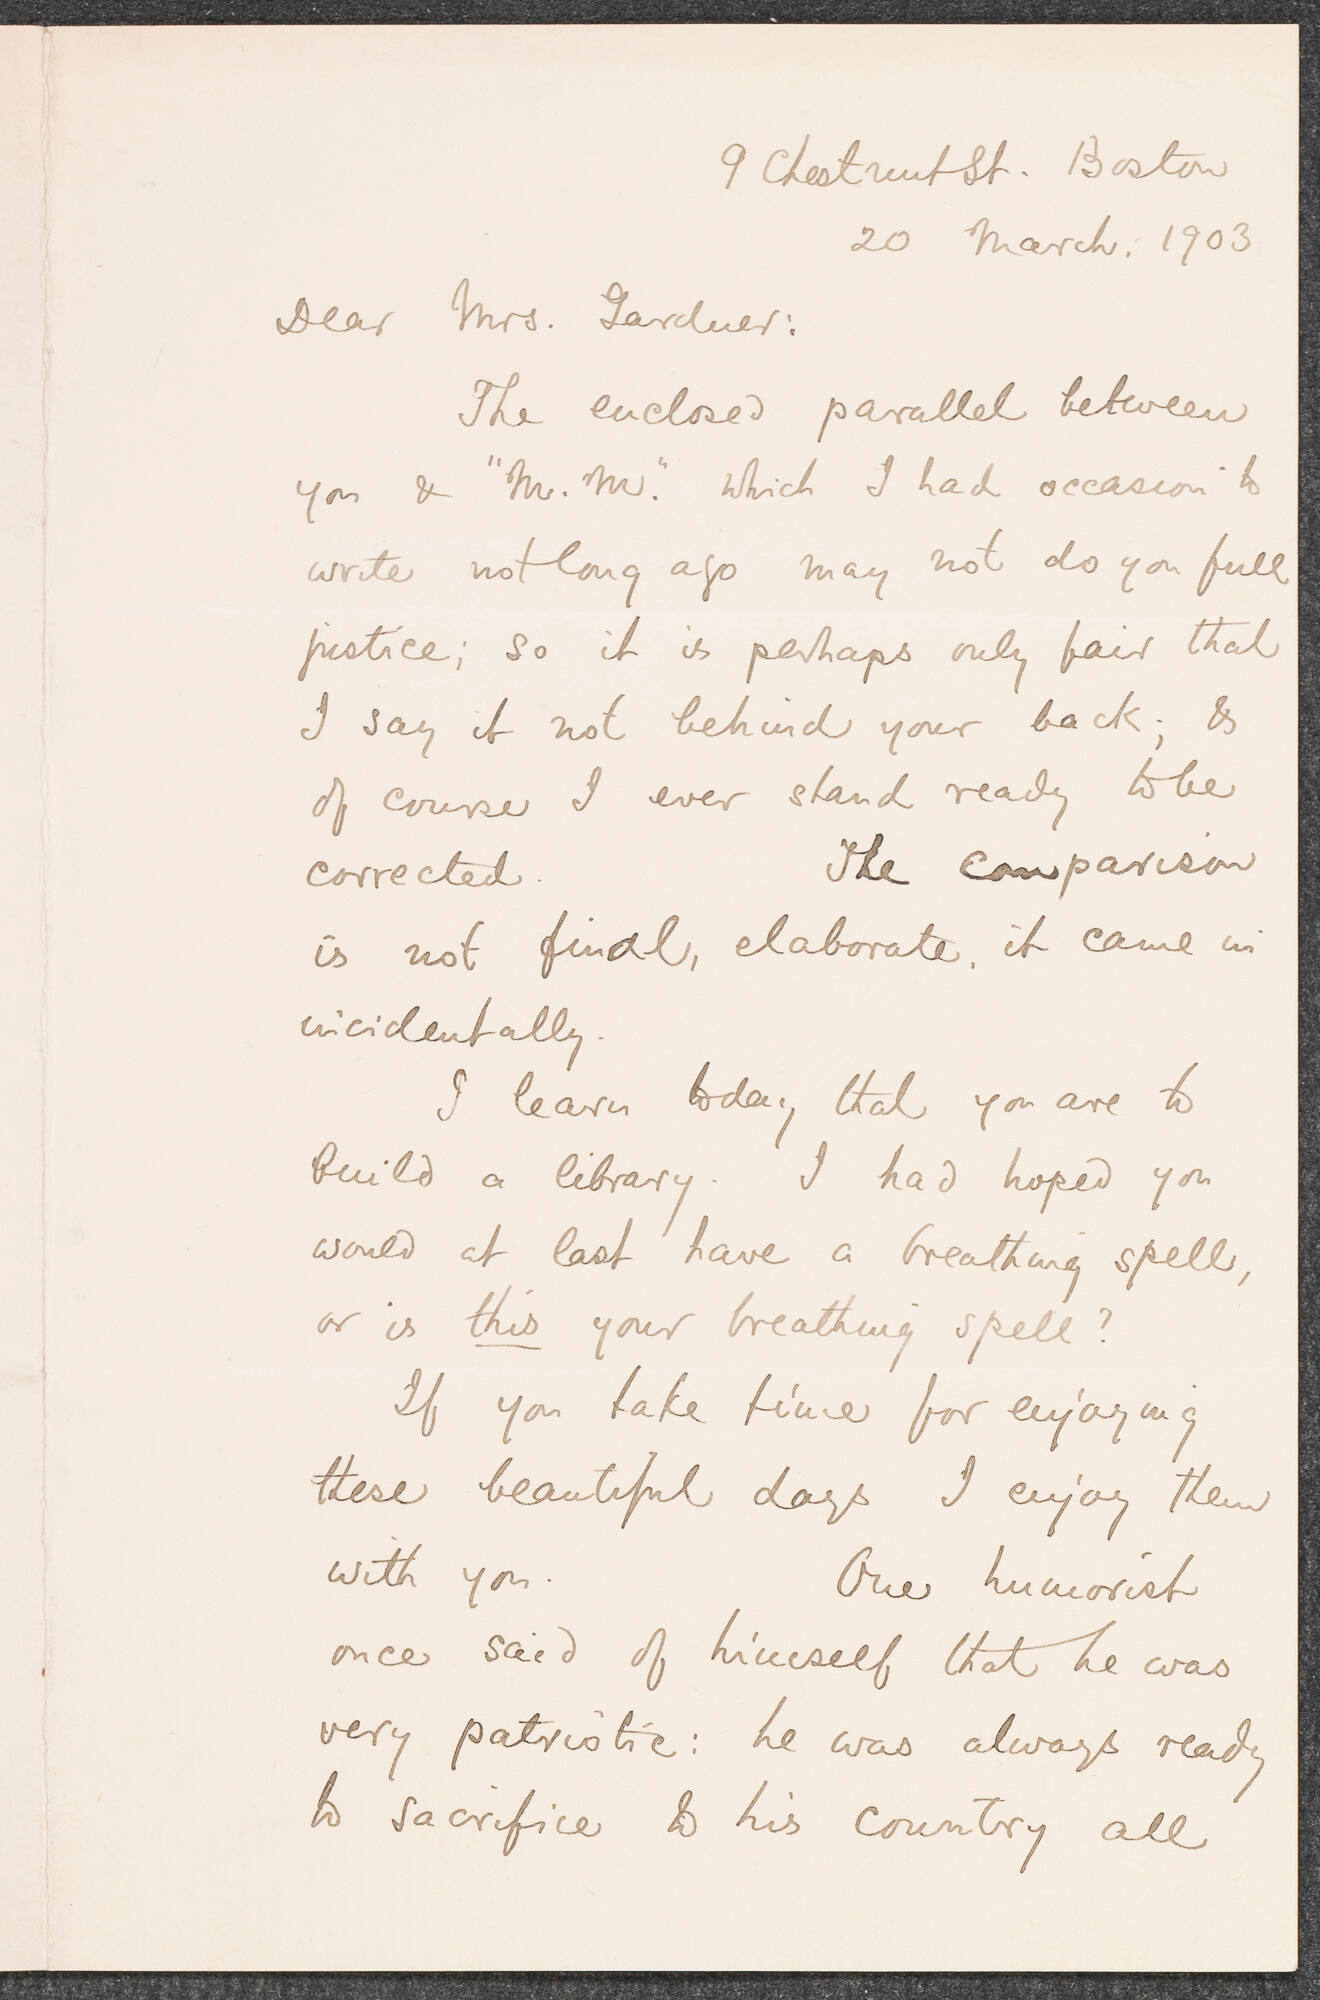 9 Chestnut St. Boston
20 March. 1903
Dear Mrs. Gardner:
The enclosed parallel between
you & "M. M." which I had occasion to
write not long ago may not do you full
justice; so it is perhaps only fair that
I say it not behind your back; &
of course I ever stand ready to be
corrected. The comparison
is not final, elaborate, it came in
incidentally.
I learn today that you are to
build a library. I had hoped you
would at last have a breathing spell,
or is this your breathing spell?
If you take time for enjoying
these beautiful days I enjoy them
with you. One humorist
once said of himself that he was
very patriotic: he was always ready
to sacrifice to his country all